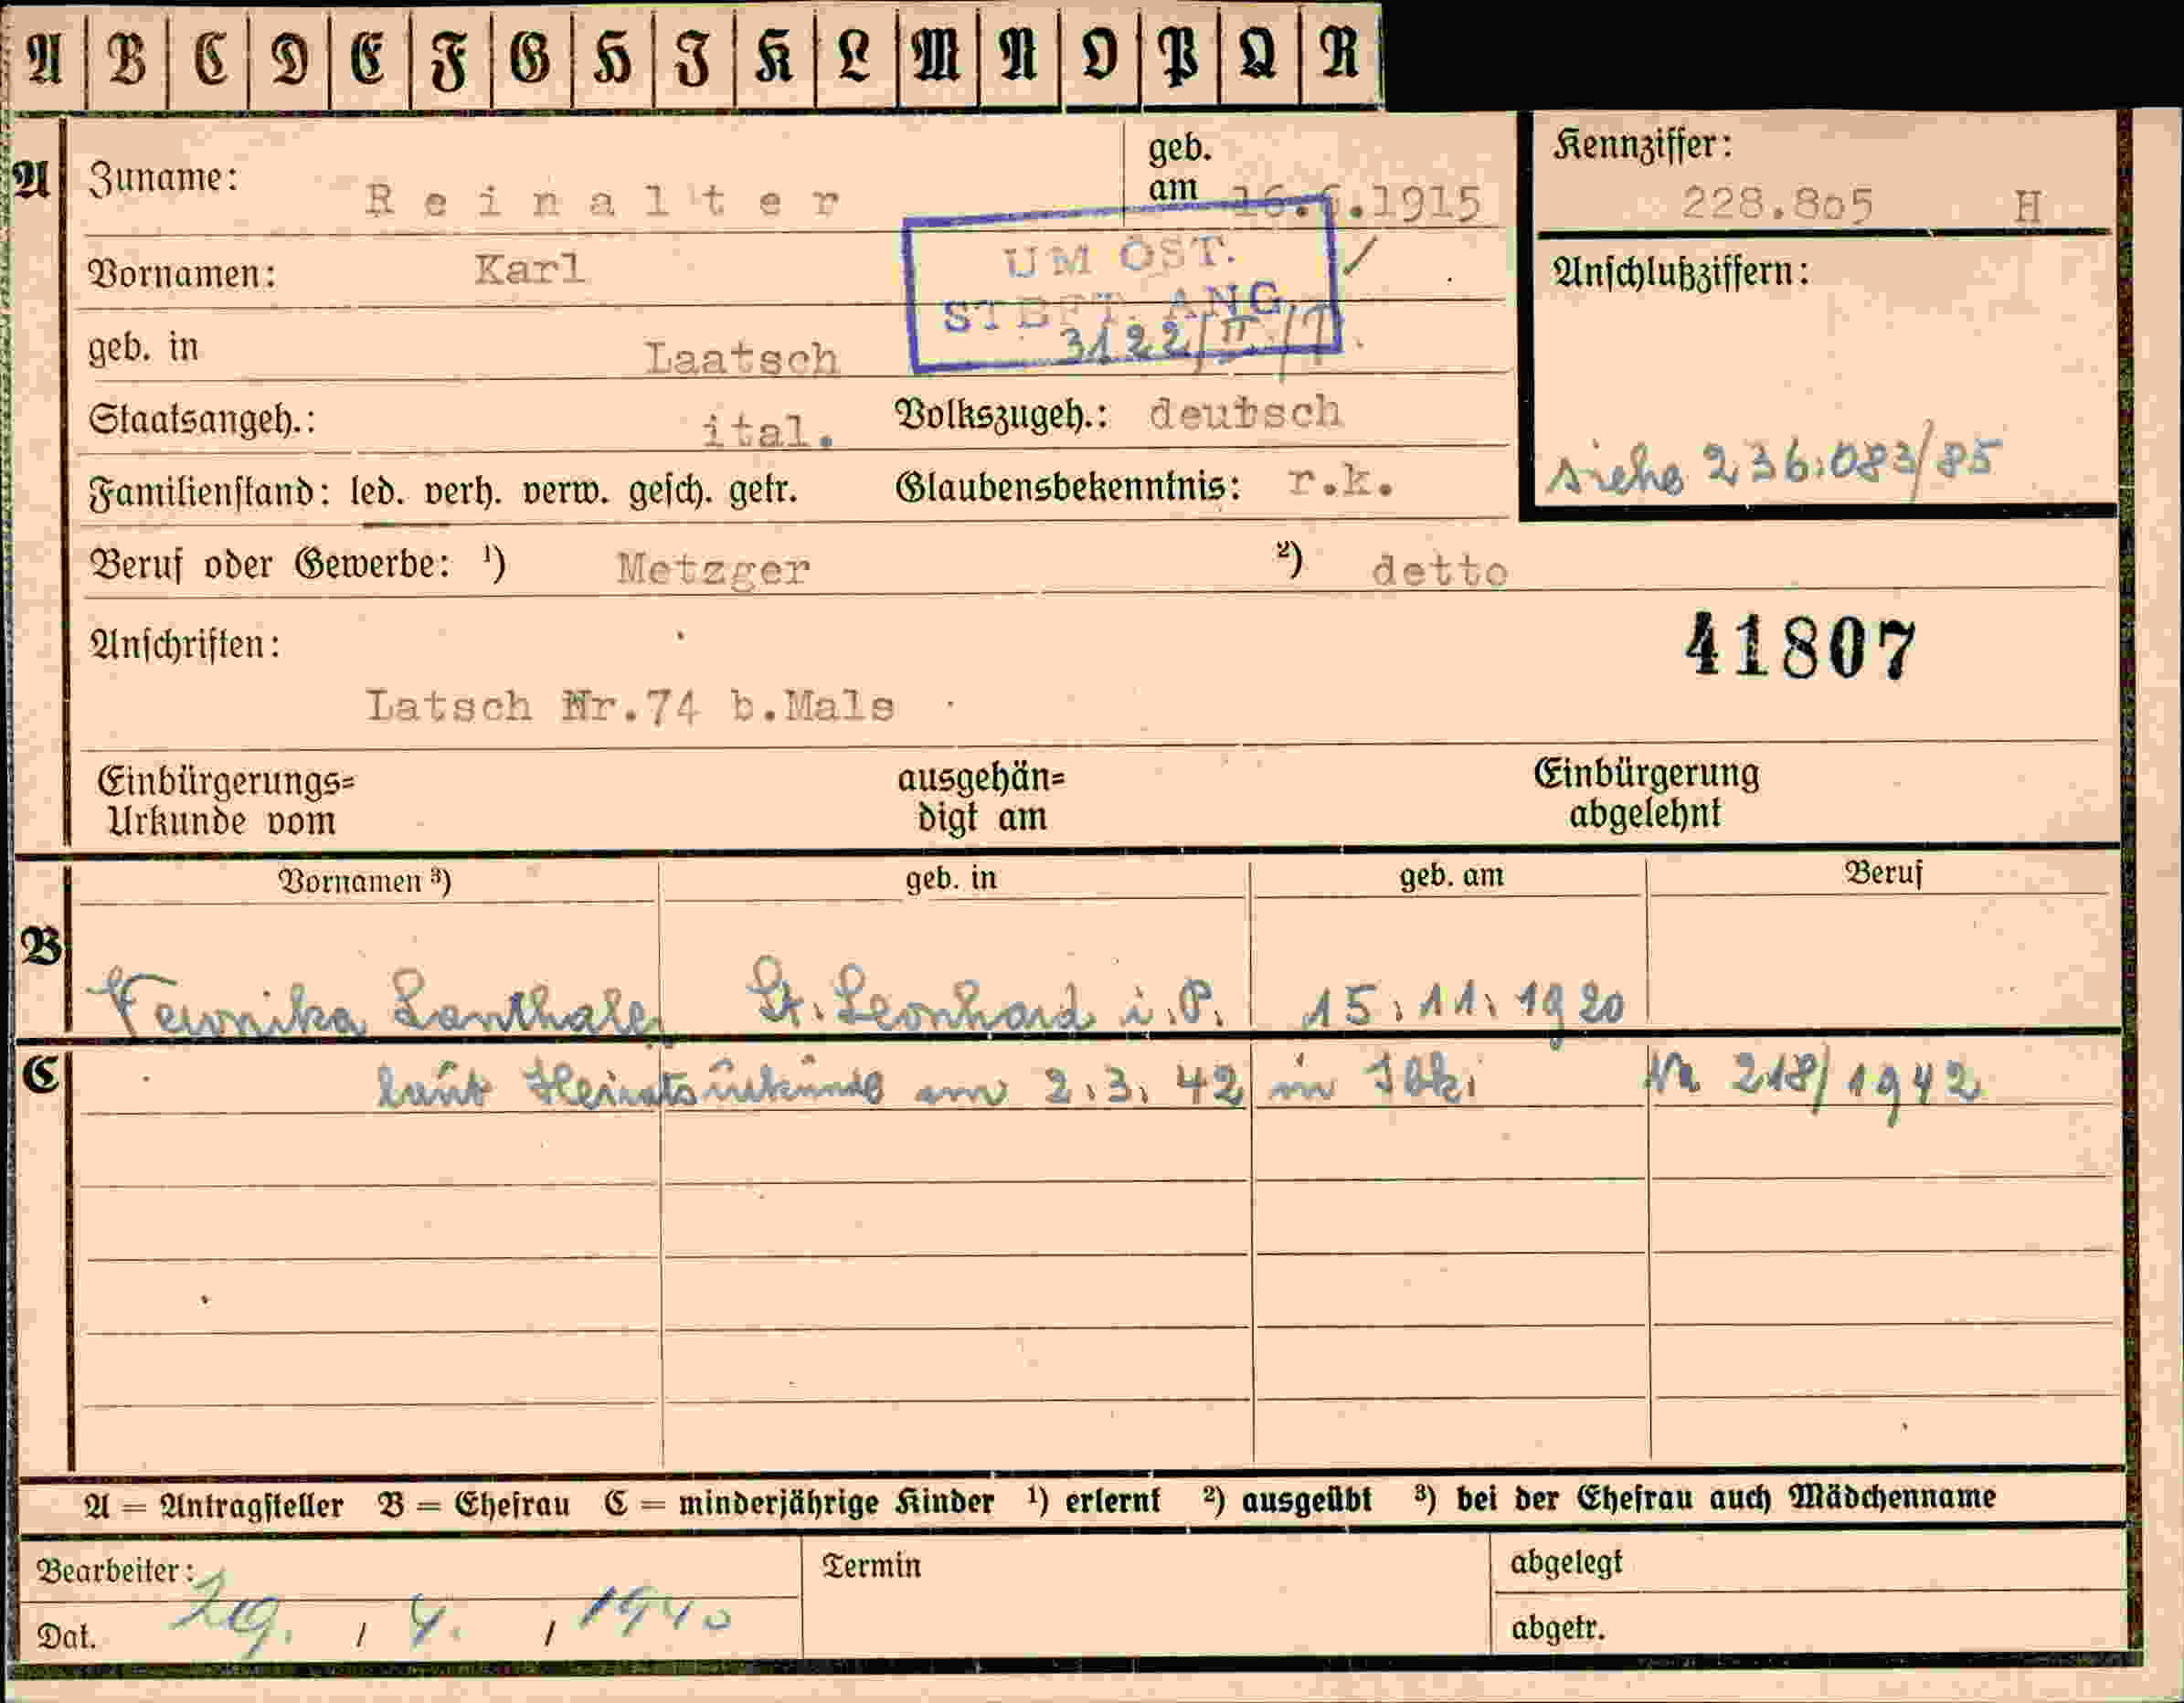 A B C D E F G H J K L M N O P Q R
A
Zuname: Reinalter
geb. am 16.6.1915
Kennziffer:
228.805 H
Vornamen: Karl
UM ÖST.
STBFT. ANG.
3122/II/
Anschlußziffern:
siehe 236.083/85
geb. in Laatsch
Staatsangeh.: ital. Volkszugeh.: deutsch
Familienstand: led. verh. verw. gesch. getr. Glaubensbekenntnis: r.k.
Beruf oder Gewerbe: 1) Metzger 2) detto
Anschriften:
41807
Latsch Nr.74 b.Mals
Einbürgerungs=
Urkunde vom
ausgehän=
digt am
Einbürgerung
abgelehnt
Vornamen 3) geb. in geb. am Beruf
B
Veronika Lanthaler St. Leonhard i.P. 15.11.1920
C
laut Heiratsurkunde am 2.3.42 in Ibk. Nr 218/1942
A = Antragsteller B = Ehefrau C = minderjährige Kinder 1) erlernt 2) ausgeübt 3) bei der Ehefrau auch Mädchenname
Bearbeiter:
Termin
abgelegt
Dat. 29. / 4. / 1940
abgetr.